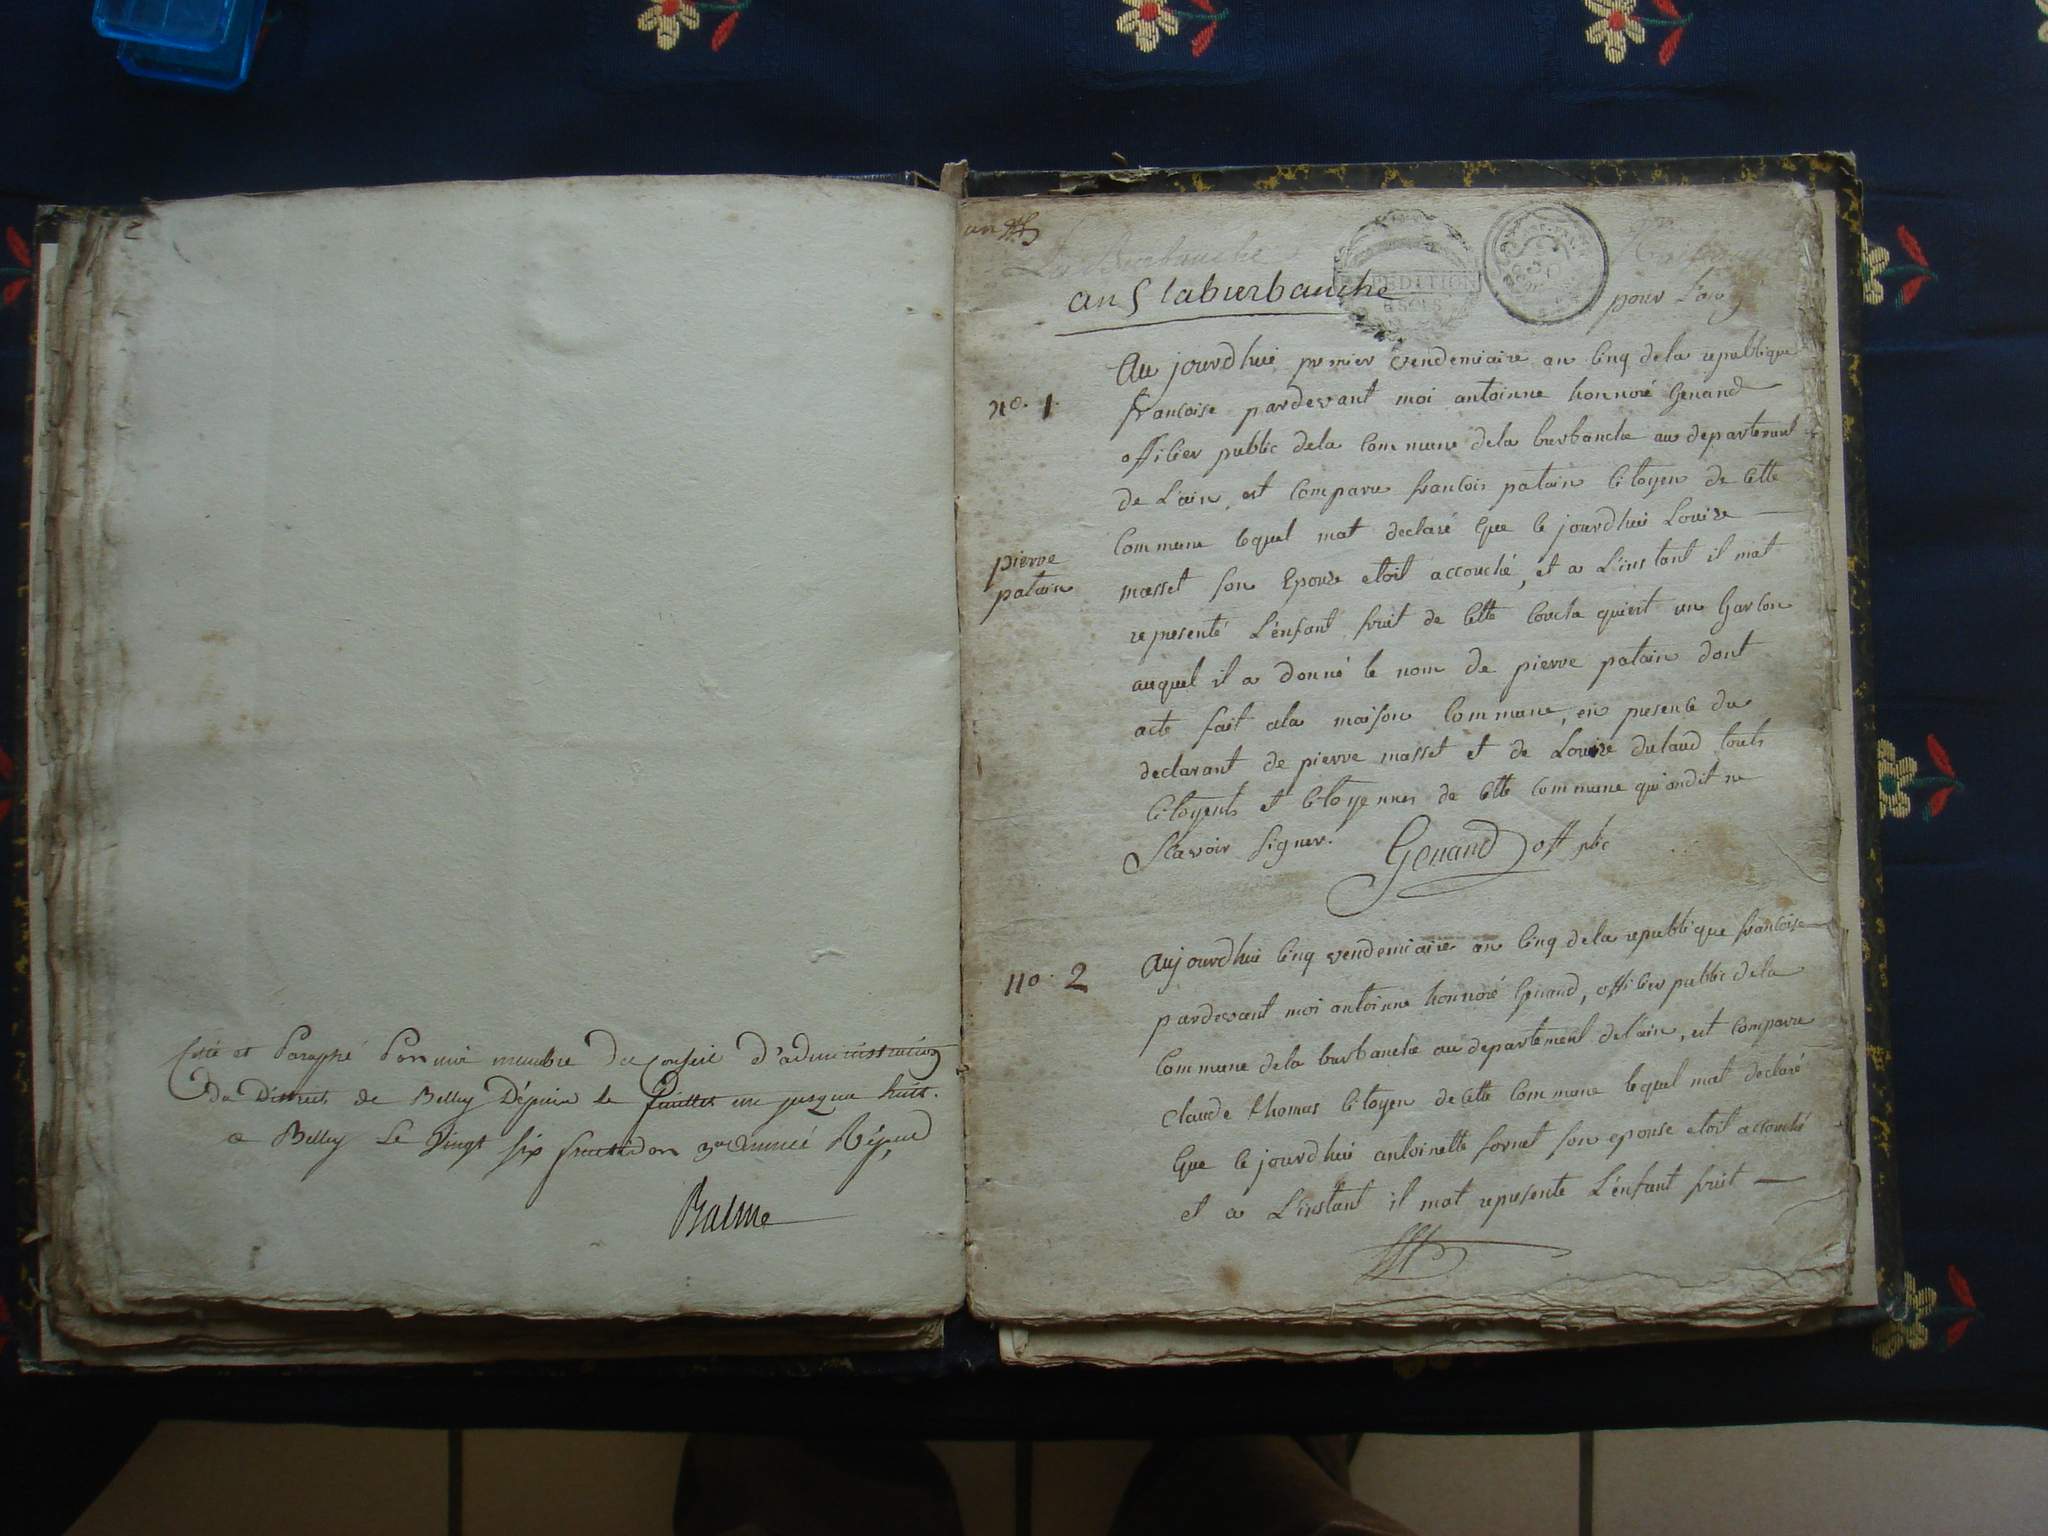 Cotté et Paraphé Par moi membre du Conseil d'administration
du District de Belley Depuis le feuillet un jusqu'au huit.
a Belley Le Vingt six fructidor 3me année Répub
Balme
un
La Burbanche
an 5 laburbanche
EXPEDITION
pour L'an 5
Au jourdhui premier vendemiaire an Cinq dela republique
francoise pardevant moi antoinne honnoré Genand
officier public dela Commune dela burbanche au departement
de L'ain, est Comparu francois patain Citoyen de Cette
Commune lequel mat declaré que Ce jourdhui Louise
masset son Epouse etoit accouché, et a L'instant il mat
representé L'enfant fruit de Cette Couche quiest un Garcon
auquel il a donné le nom de pierre patain dont
acte fait ala maison Commune, en presence du
declarant de pierre masset et de Louise dulaud touts
Citoyents et Citoyennes de Cette Commune qui ondit ne
Scavoir signer. Genand off pbc
no. 1.
pierre
patain
no. 2
Aujourdhui Cinq vendemiaire an Cinq dela republique francoise
pardevant moi antoinne honnoré Genand, officier public dela
Commune dela burbanche au departement delain, est Comparu
Claude thomas Citoyen de Cette Commune lequel mat declaré
que Ce jourdhui antoinette fornet son epouse etoit accouché
et a L'instant il mat represente L'enfant fruit